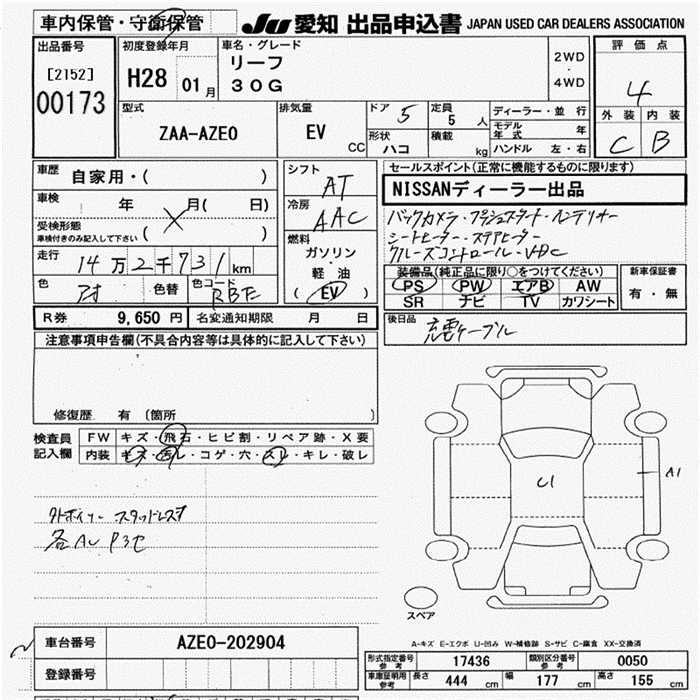 車内保管・守衛保管
JU 愛知 出品申込書 JAPAN USED CAR DEALERS ASSOCIATION
出品番号 初度登録年月 車名・グレード 評価点
[2152] H28 01月 リーフ 2WD・4WD 4
00173 30G
型式 排気量 ドア 5 定員 5人 ディーラー・並行 外装 内装
ZAA-AZE0 EV CC 形状 ハコ 積載 kg モデル年式 年 C B
ハンドル 左・右
車歴 自家用・( ) シフト AT セールスポイント(正常に機能するものに限ります)
車検 年 月( 日) 冷房 AAC NISSANディーラー出品
受検形態 車検付きのみ記入して下さい ( ) バックカメラ・プッシュスタート・
走行 14万2千731km 燃料 ガソリン シートヒーター・ステアヒーター
軽油 クルーズコントロール・VDC
色 色替 色コード RBE (EV) 装備品(純正品に限り○をつけてください) 新車保証書
PS PW エアB AW 有・無
SR ナビ TV カワシート
R券 9,650円 名変通知期限 月 日 後日品
充電ケーブル
注意事項申告欄(不具合内容等は具体的に記入して下さい)
修復歴 有 (箇所 )
検査員記入欄 FW キズ・飛石・ヒビ割・リペア跡・X要
内装 キズ・汚れ・コゲ・穴・スレ・キレ・破レ
C1 A1
スタッドレス
各AU
スペア
A-キズ E-エクボ U-凹み W-補修跡 S-サビ C-腐食 XX-交換済
車台番号 AZE0-202904
型式指定番号 参考 17436 類別区分番号 参考 0050
登録番号 車庫証明用 参考 長さ 444 cm 幅 177 cm 高さ 155 cm